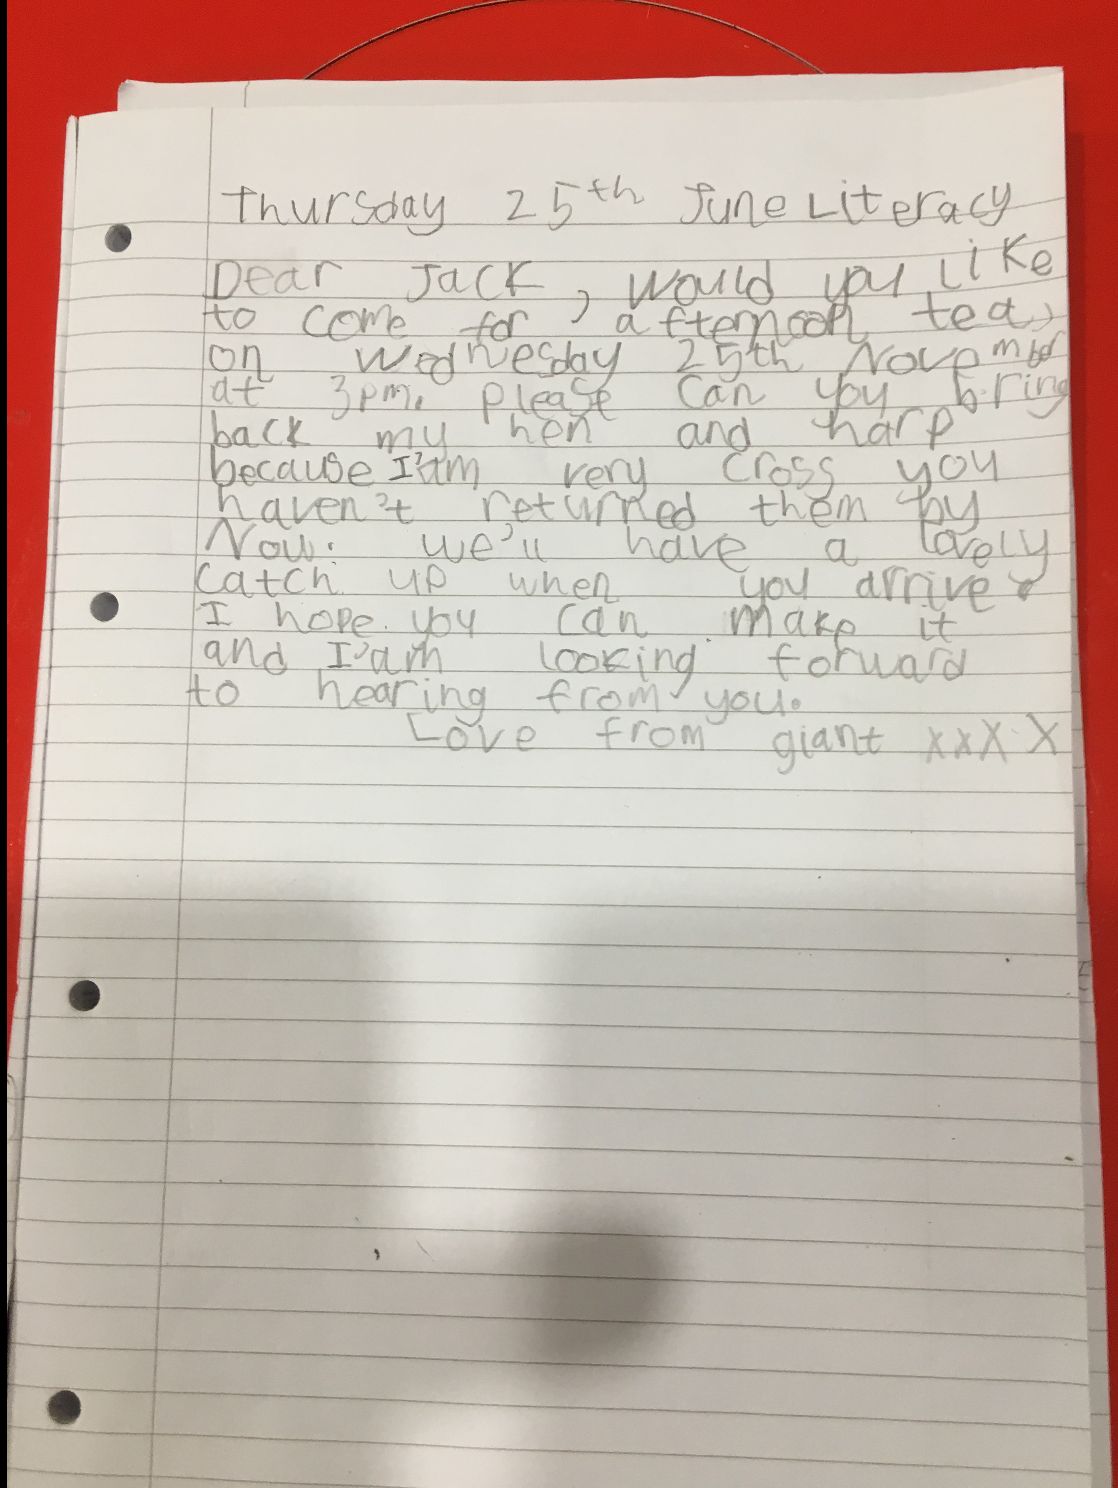 Thursday 25th June Literacy
Dear Jack, would you like
to come for afternoon tea,
on Wednesday 25th November
at 3pm. please can you bring
back my hen and harp
because I'am very cross you
haven't returned them by
Now. we'll have a lovely
catch up when you arrive.
I hope you can make it
and I'am looking forward
to hearing from you.
Love from giant xxXX